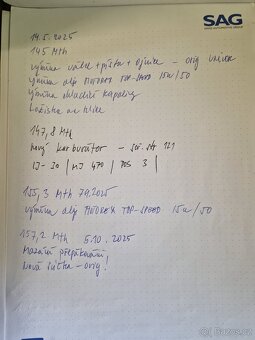 SAG
19.5.2025
145 Mth
výměna válce + pístu + ojnice - orig
výměna olej MOTOREX TOP-SPEED 15w/50
výměna chladící kapaliny
Ložiska
147,8 Mth
nový karburátor -
155,3 Mth 7.9.2025
výměna olej MOTOREX TOP-SPEED 15w/50
157,2 Mth 5.10.2025
Mazání přepákování
Nová - orig!
Bazoš.cz